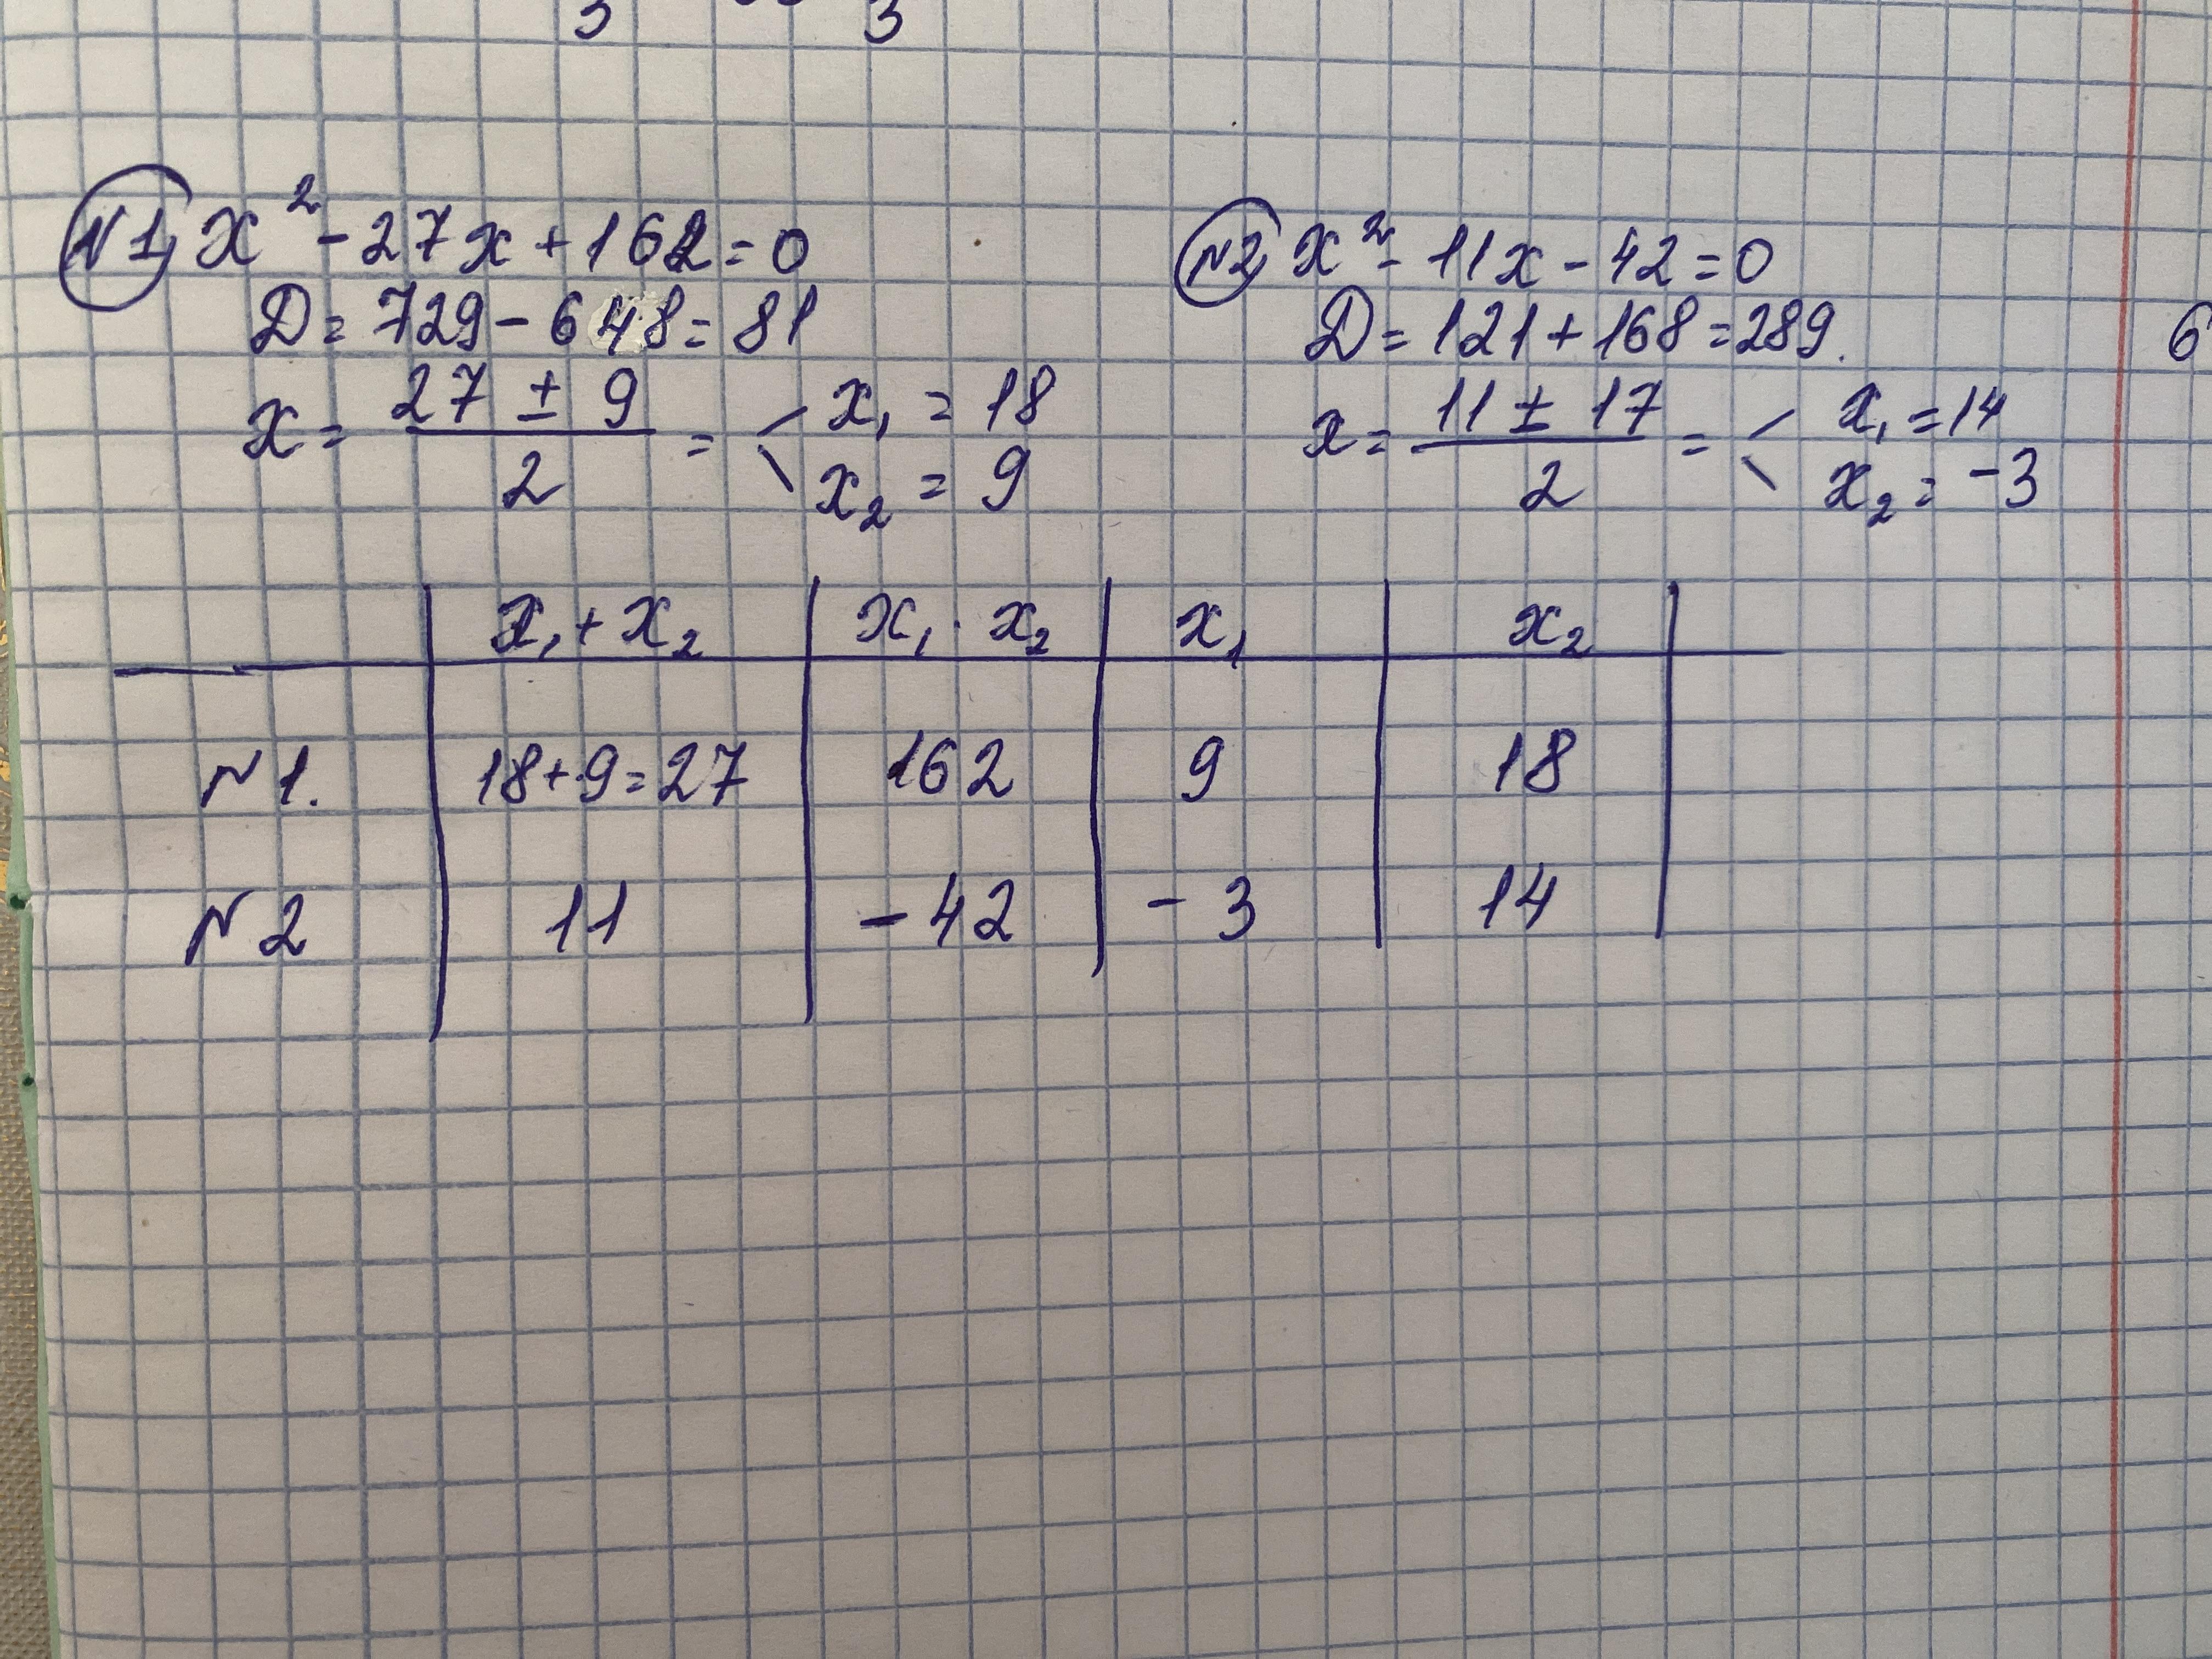 3 3
N1, x² - 27x + 162 = 0
D = 729 - 648 = 81
x = (27 ± 9)/2 = < x₁ = 18
x₂ = 9
N2, x² - 11x - 42 = 0
D = 121 + 168 = 289.
x = (11 ± 17)/2 = < x₁ = 14
x₂ = -3
6
x₁ + x₂ x₁ · x₂ x₁ x₂
N1. 18+9=27 162 9 18
N2 11 -42 -3 14